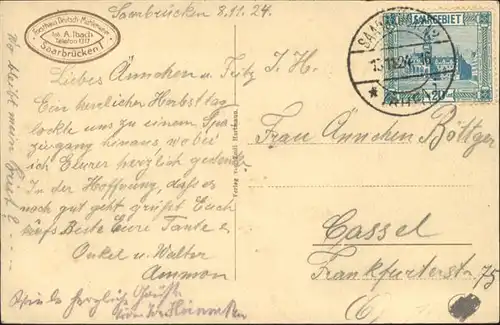 Forsthaus Deutsch-Mühlental
Inh. A. Ibach
Telefon 1317
Saarbrücken 1
Saarbrücken 8.11.24.
Liebes Ännchen u. Fritz I. H.
Ein herrlicher Herbsttag
lockte uns zu einem Spa
ziergang hinaus, wobei
ich Eurer herzlich gedenke
In der Hoffnung, dass es
noch gut geht grüßt Euch
aufs Beste Eure Tante u
Onkel u. Walter
Ammon
Viele herzliche
Wo bleibt mein
Verlag von Emil Hartmann.
SAARGEBIET
SAARBRÜCKEN 2
13.11.24.
20
Frau Ännchen Böttger
Cassel
Frankfurterstr 75